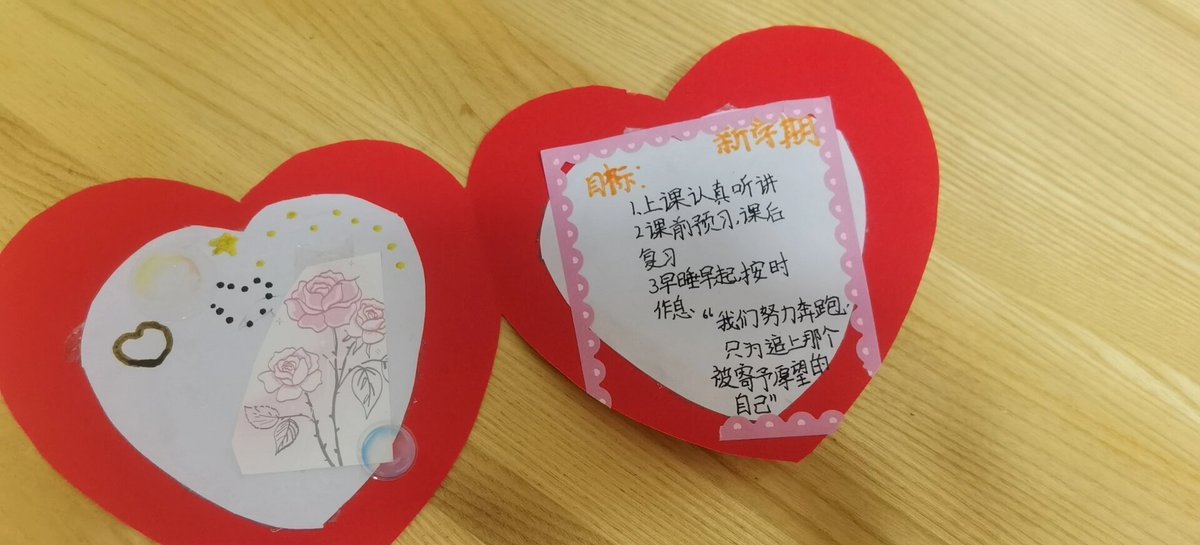 新学期
目标:
1.上课认真听讲
2课前预习,课后
复习
3早睡早起,按时
作息.
“我们努力奔跑.
只为追上那个
被寄予厚望的
自己”